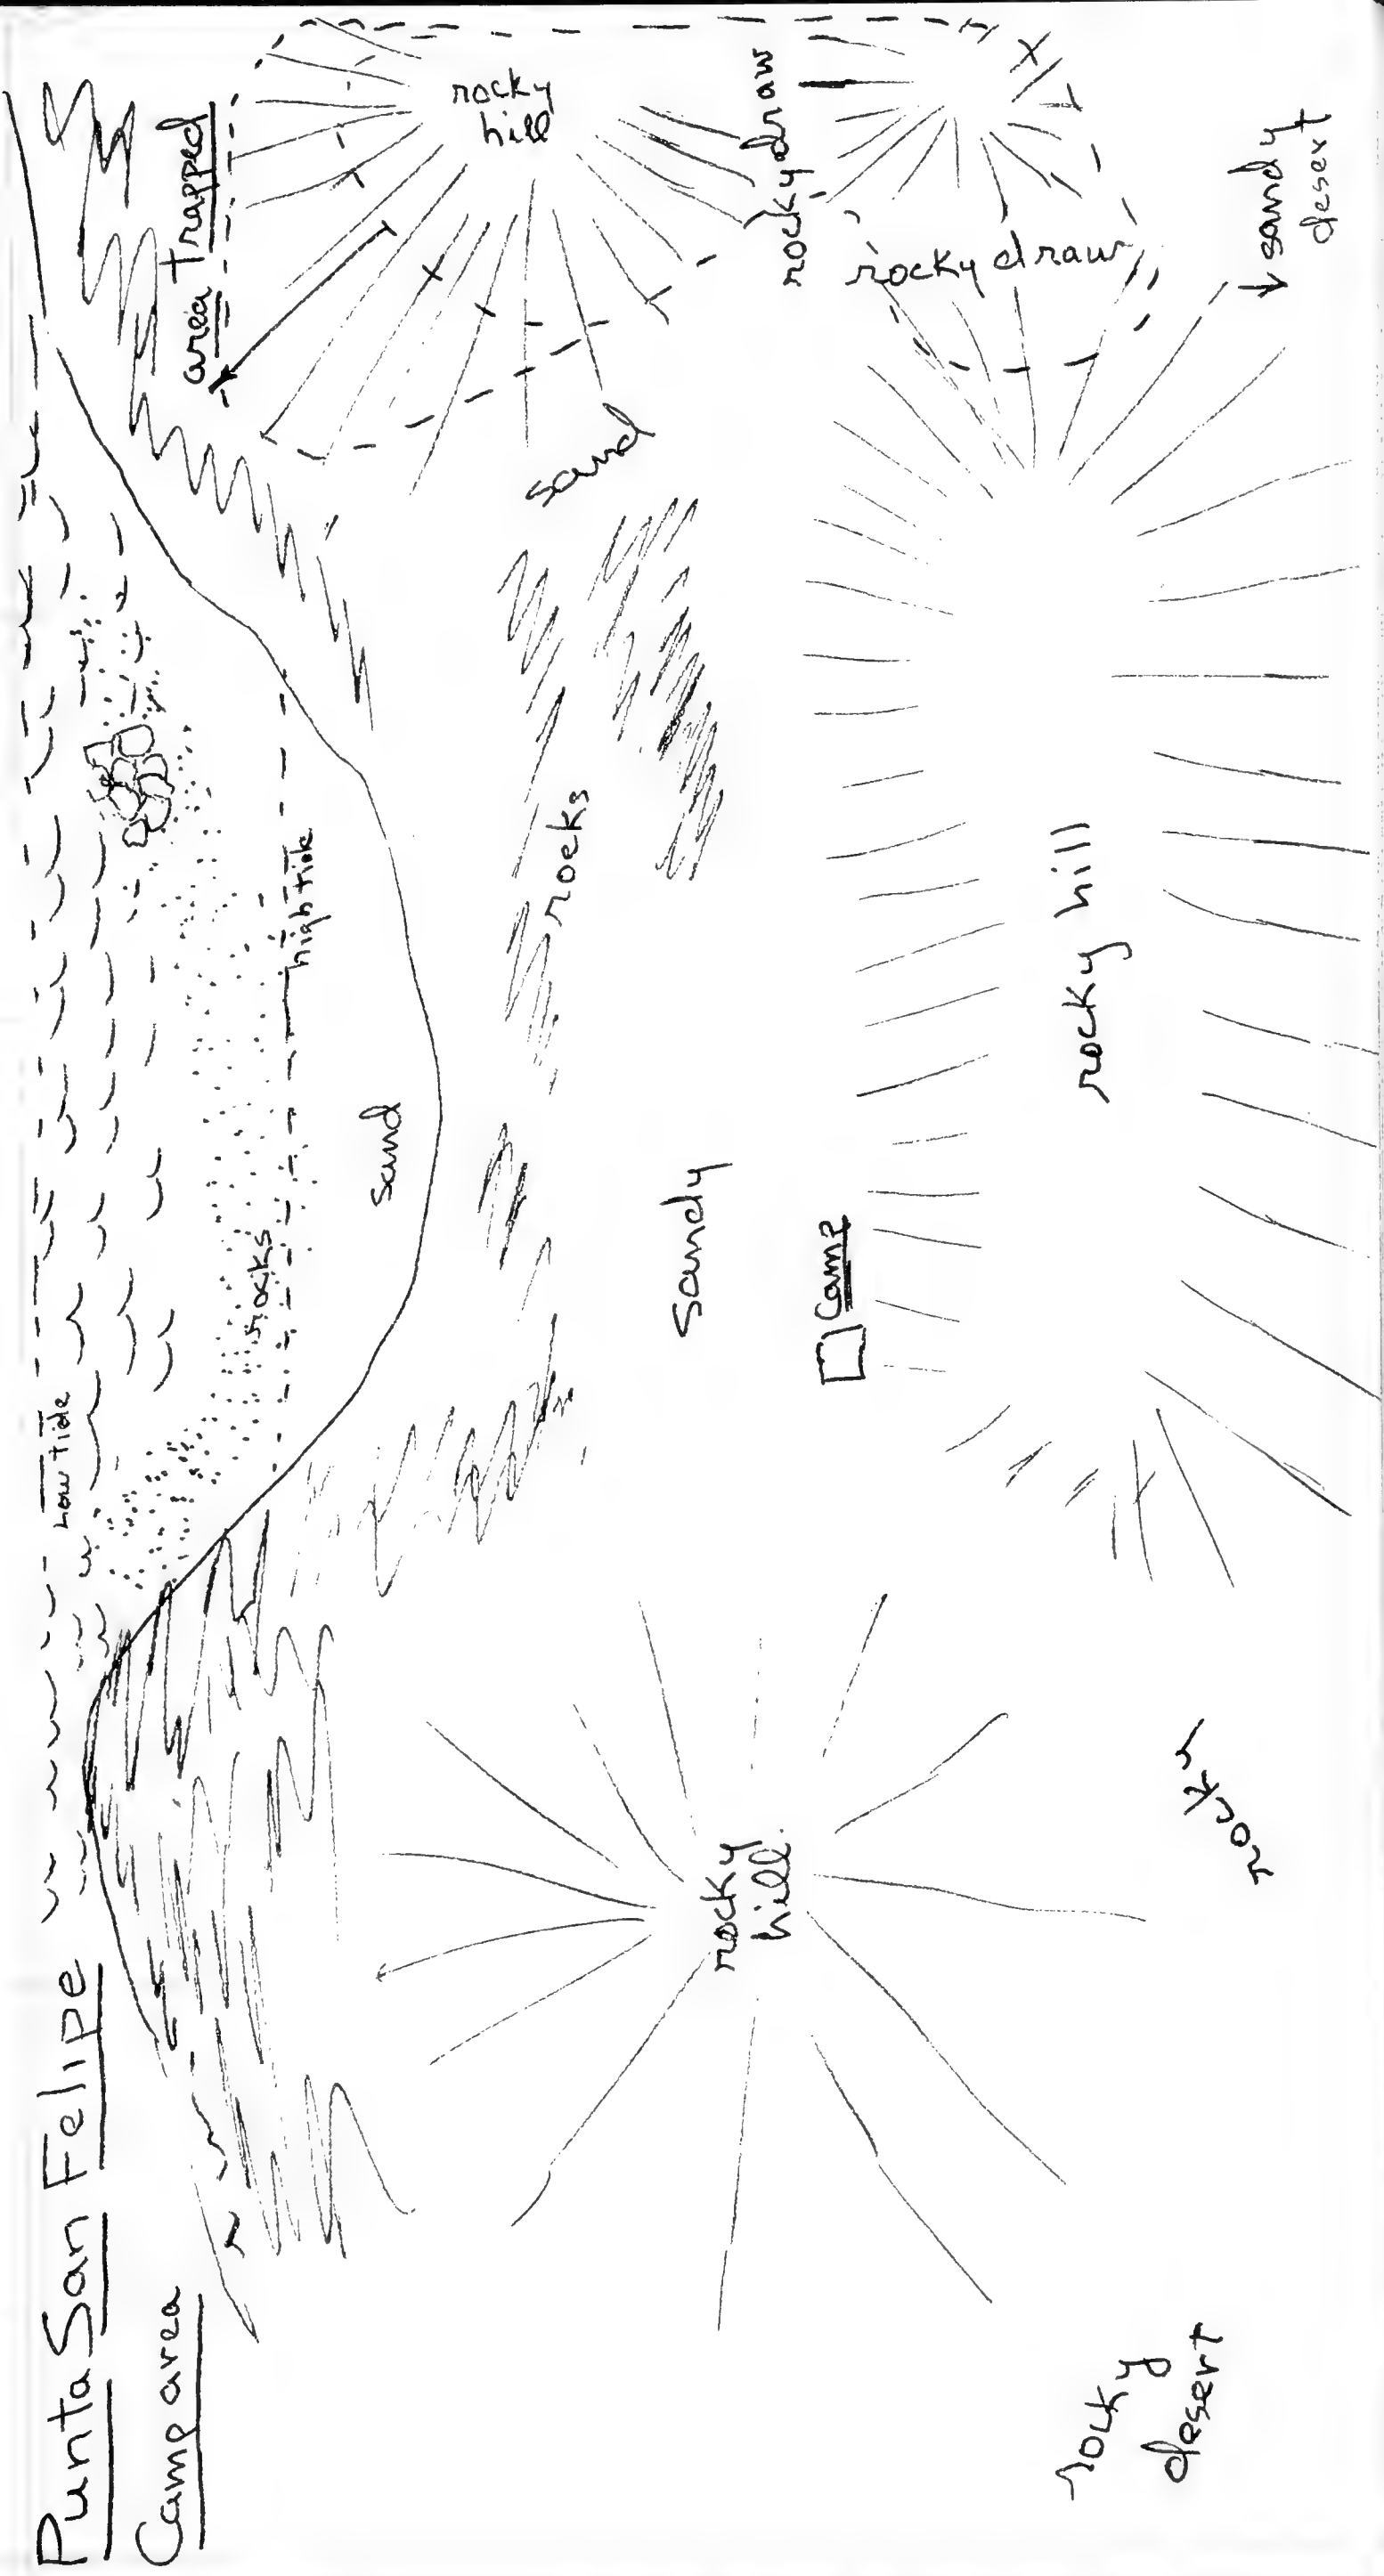 Punta San Felipe
Camp area
Low tide
high tide
rocks
sand
rocks
sand
sandy
Camp
area Trapped
rocky
hill
rocky draw
rocky draw
sandy
desert
rocky hill
rocky
hill
rocky
rocky
desert